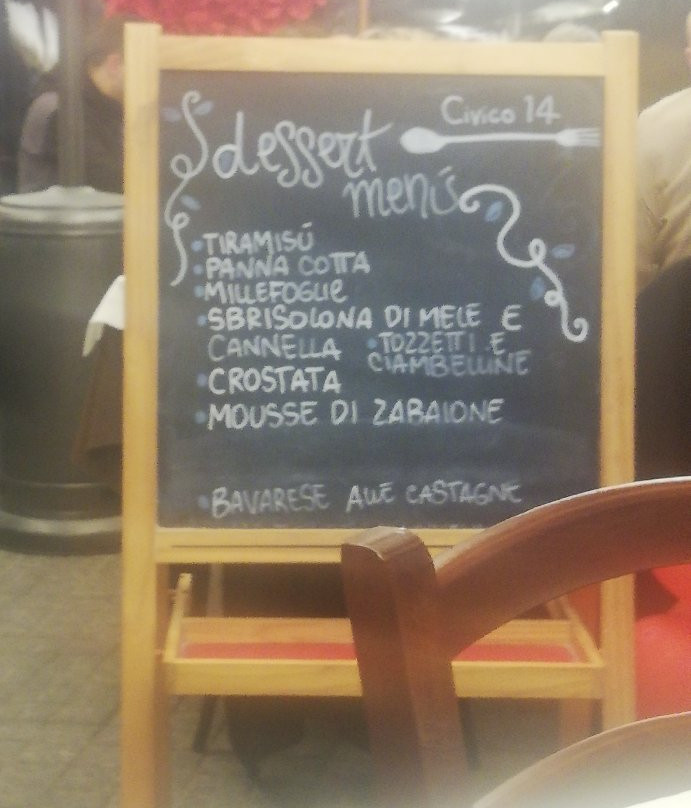 Civico 14
dessert
menú
• TIRAMISÚ
• PANNA COTTA
• MILLEFOGLIE
• SBRISOLONA DI MELE E
CANNELLA • TOZZETTI E
CIAMBELLINE
• CROSTATA
• MOUSSE DI ZABAIONE
• BAVARESE ALLE CASTAGNE